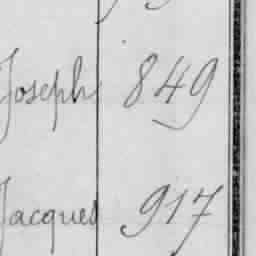 Joseph 849
Jacques 917